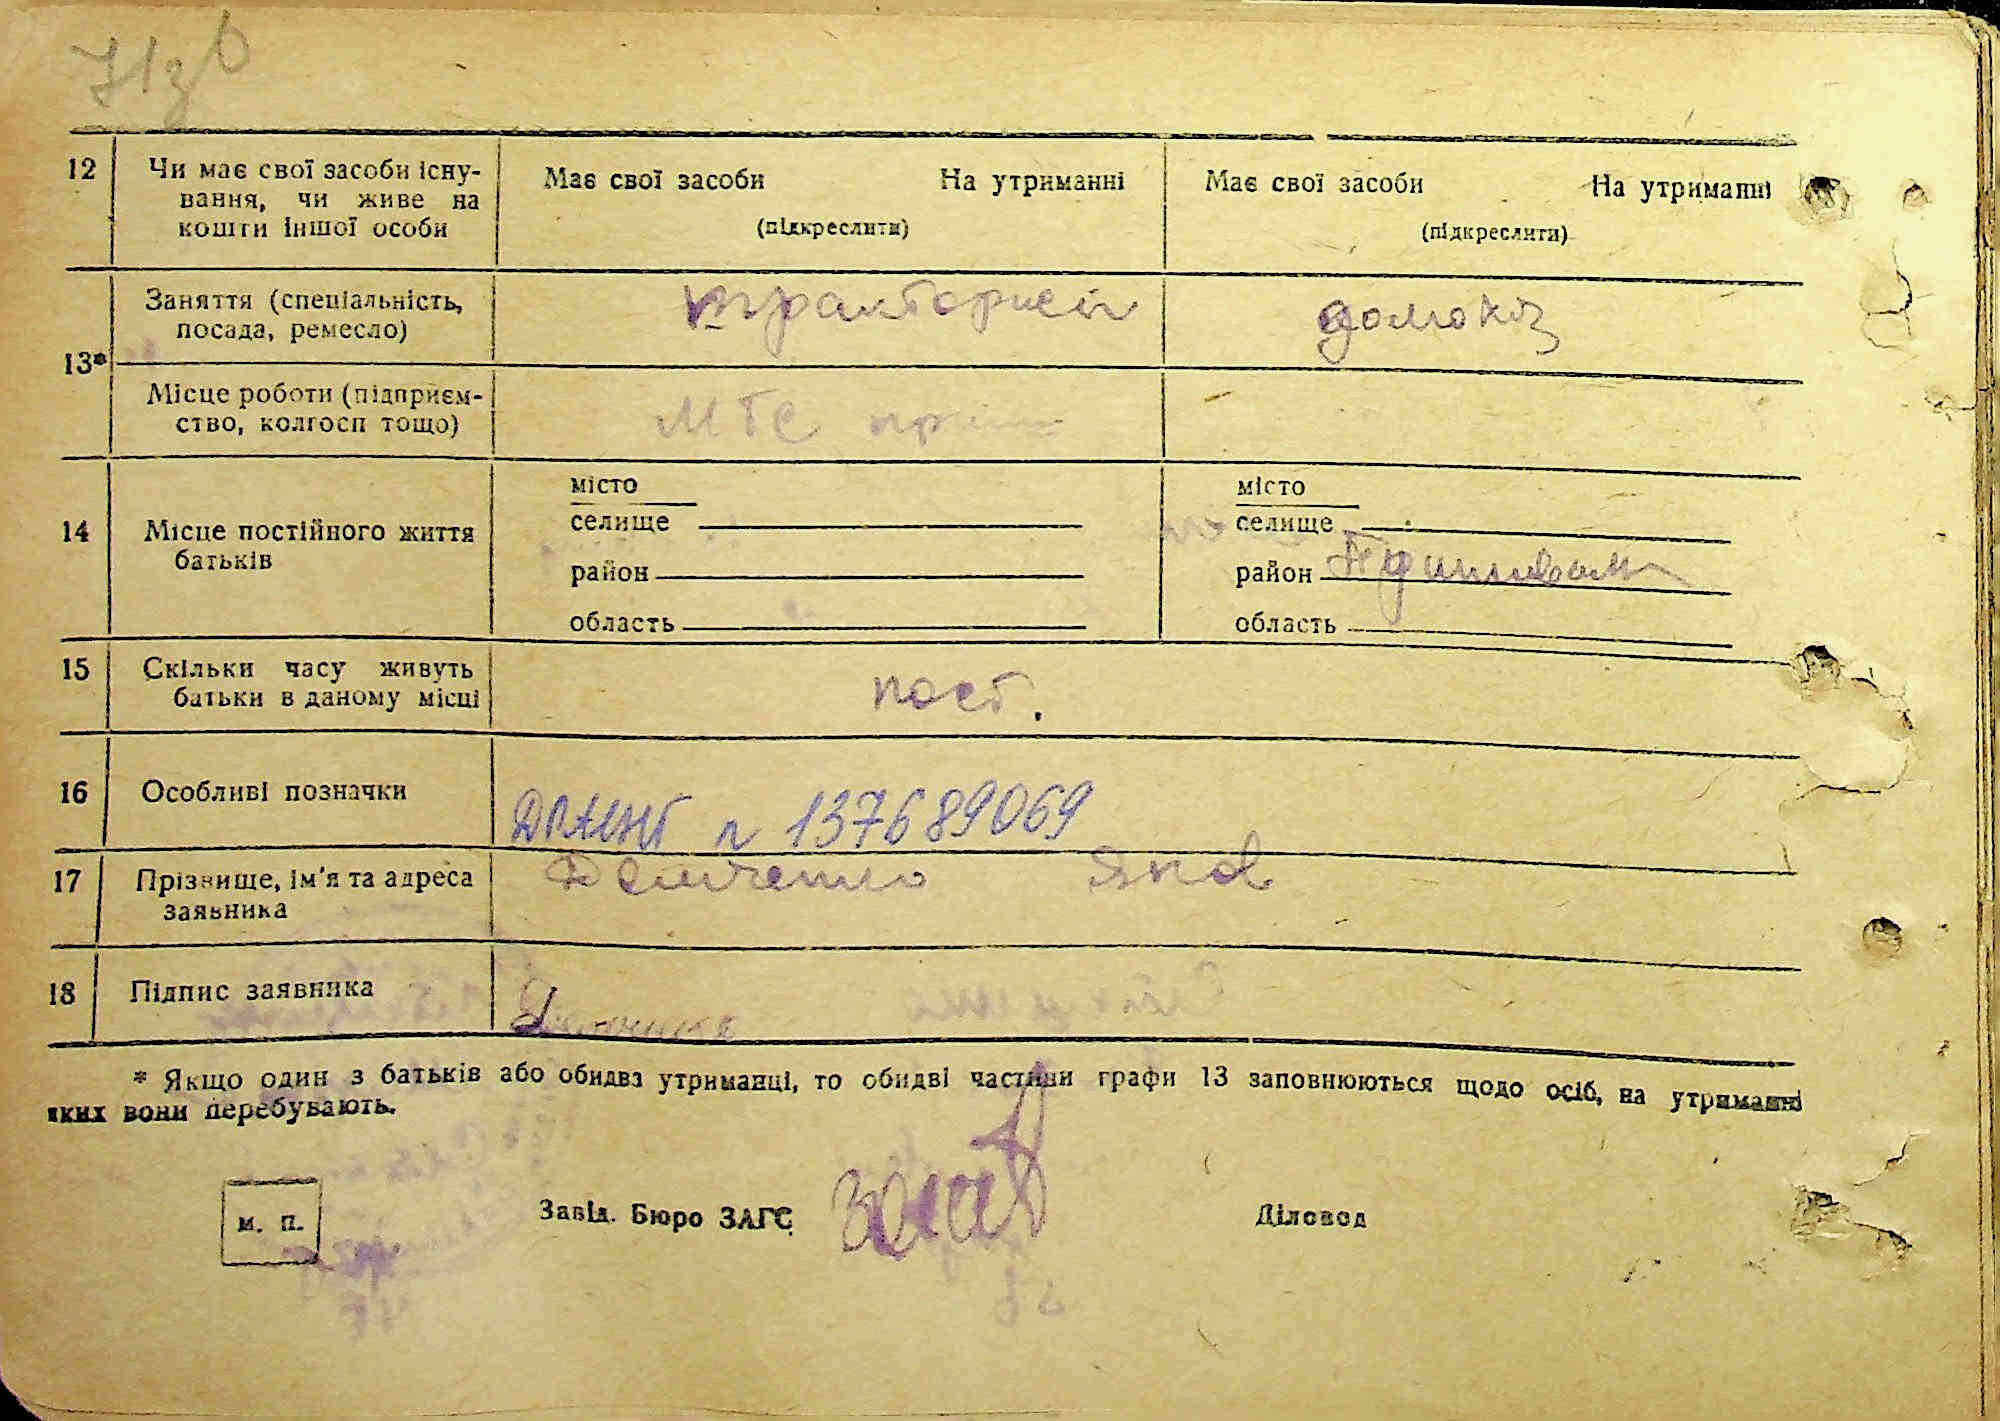 71зв
12 Чи має свої засоби існу-
вання, чи живе на
кошти іншої особи
Має свої засоби На утриманні
(підкреслити)
Має свої засоби На утриманні
(підкреслити)
13*
Заняття (спеціальність,
посада, ремесло)
тракторист
домохоз
Місце роботи (підприєм-
ство, колгосп тощо)
МТС
14 Місце постійного життя
батьків
місто
селище
район
область
місто
селище
район
область
15 Скільки часу живуть
батьки в даному місці
пост.
16 Особливі позначки
ДРАЦНГ n 137689069
17 Прізвище, ім'я та адреса
заявника
Демченко Яків
18 Підпис заявника
* Якщо один з батьків або обидва утриманці, то обидві частини графи 13 заповнюються щодо осіб, на утриманні
яких вони перебувають.
м. п.
Завід. Бюро ЗАГС
Діловод